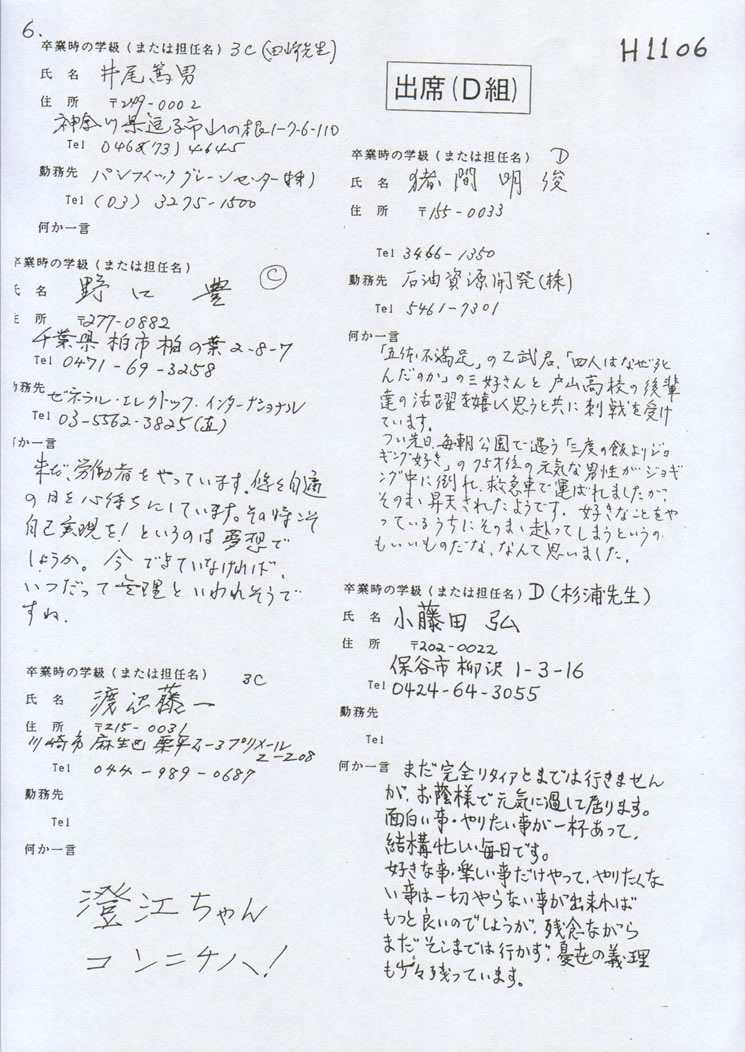 6.
卒業時の学級(または担任名) 3C(田崎先生)
氏 名 井尾篤男
住 所 〒249-0002
神奈川県逗子市山の根1-7-6-110
Tel 0468(73)4645
勤務先 パシフィックグレーンセンター(株)
Tel (03) 3275-1500
何か一言
卒業時の学級(または担任名) Ⓒ
氏 名 野口 豊
住 所 〒277-0882
千葉県柏市柏の葉2-8-7
Tel 0471-69-3258
勤務先 ゼネラル・エレクトリック・インターナショナル
Tel 03-5562-3825(直)
何か一言
未だ、労働者をやっています。悠々自適
の日を心待ちにしています。その時こそ
自己実現を!というのは夢想で
しょうか。今できていなければ、
いつだって無理といわれそうで
すね.
卒業時の学級(または担任名) 3C
氏 名 渡辺藤一
住 所 〒215-0031
川崎市麻生区栗平2-3プリメール
2-208
Tel 044-989-0687
勤務先
Tel
何か一言
澄江ちゃん
コンニチハ!
H1106
出席(D組)
卒業時の学級(または担任名) D
氏 名 猪間明俊
住 所 〒155-0033
Tel 3466-1350
勤務先 石油資源開発(株)
Tel 5461-7301
何か一言
「五体不満足」の乙武君、「四人はなぜ死
んだのか」の三好さんと戸山高校の後輩
達の活躍を嬉しく思うと共に刺戟を受け
ています。
つい先日、毎朝公園で遇う「三度の飯よりジョ
ギング好き」の75才位の元気な男性がジョギ
ング中に倒れ、救急車で運ばれましたが、
そのまゝ昇天されたようです。好きなことをや
っているうちにそのまゝ逝ってしまうというの
もいいものだな、なんて思いました。
卒業時の学級(または担任名) D(杉浦先生)
氏 名 小藤田 弘
住 所 〒202-0022
保谷市柳沢 1-3-16
Tel 0424-64-3055
勤務先
Tel
何か一言 まだ完全リタイアとまでは行きません
が、お蔭様で元気に過して居ります。
面白い事・やりたい事が一杯あって、
結構忙しい毎日です。
好きな事・楽しい事だけやって、やりたくな
い事は一切やらない事が出来れば
もっと良いのでしょうが、残念ながら
まだそこまでは行かず、憂世の義理
も少々残っています。